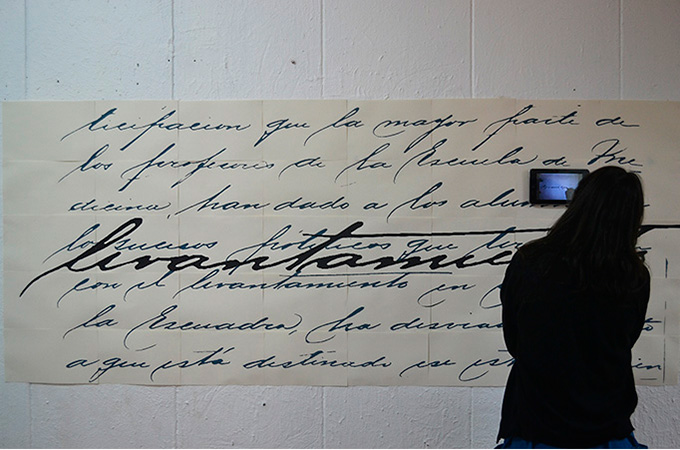 ticipacion que la mayor parte de
los profesores de la Escuela de Me
dicina, han dado a los alum
los sucesos políticos que
levantamie
con el levantamiento en
la Escuadra, ha desvia
a que está destinado ese